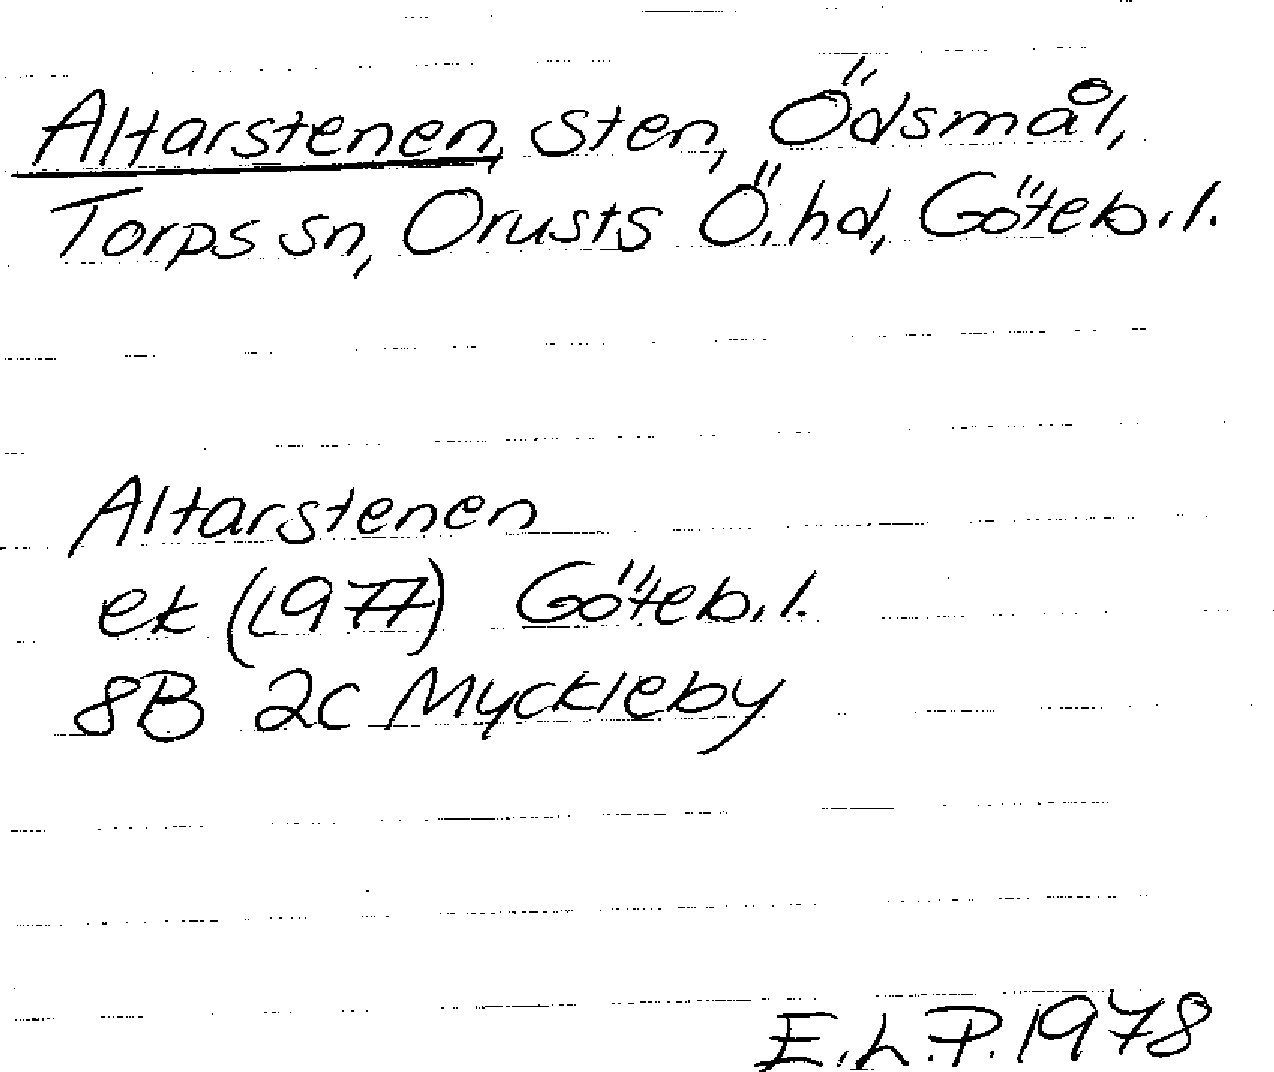 Altarstenen, sten, Ödsmål,
Torps sn, Orusts Ö. hd, Göteb. l.
Altarstenen
ek (1977) Göteb. l.
8B 2c Myckleby
E.L.P. 1978